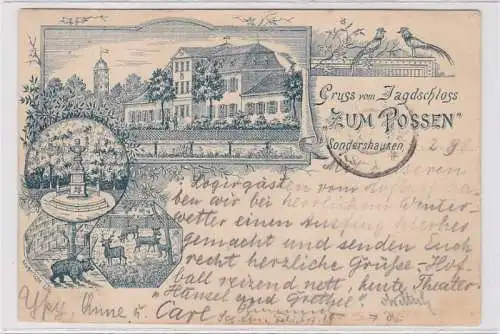 Gruss vom Jagdschloss
"ZUM POSSEN"
Sondershausen,
2.98
Logirgästen vom
ben wir bei herrlichem Winter-
wetter einen Ausflug hierher
gemacht und senden Euch
recht herzliche Grüße. Hof-
ball reizend nett, heute Theater
"Hänsel und Gretel"
Anne u. Carl